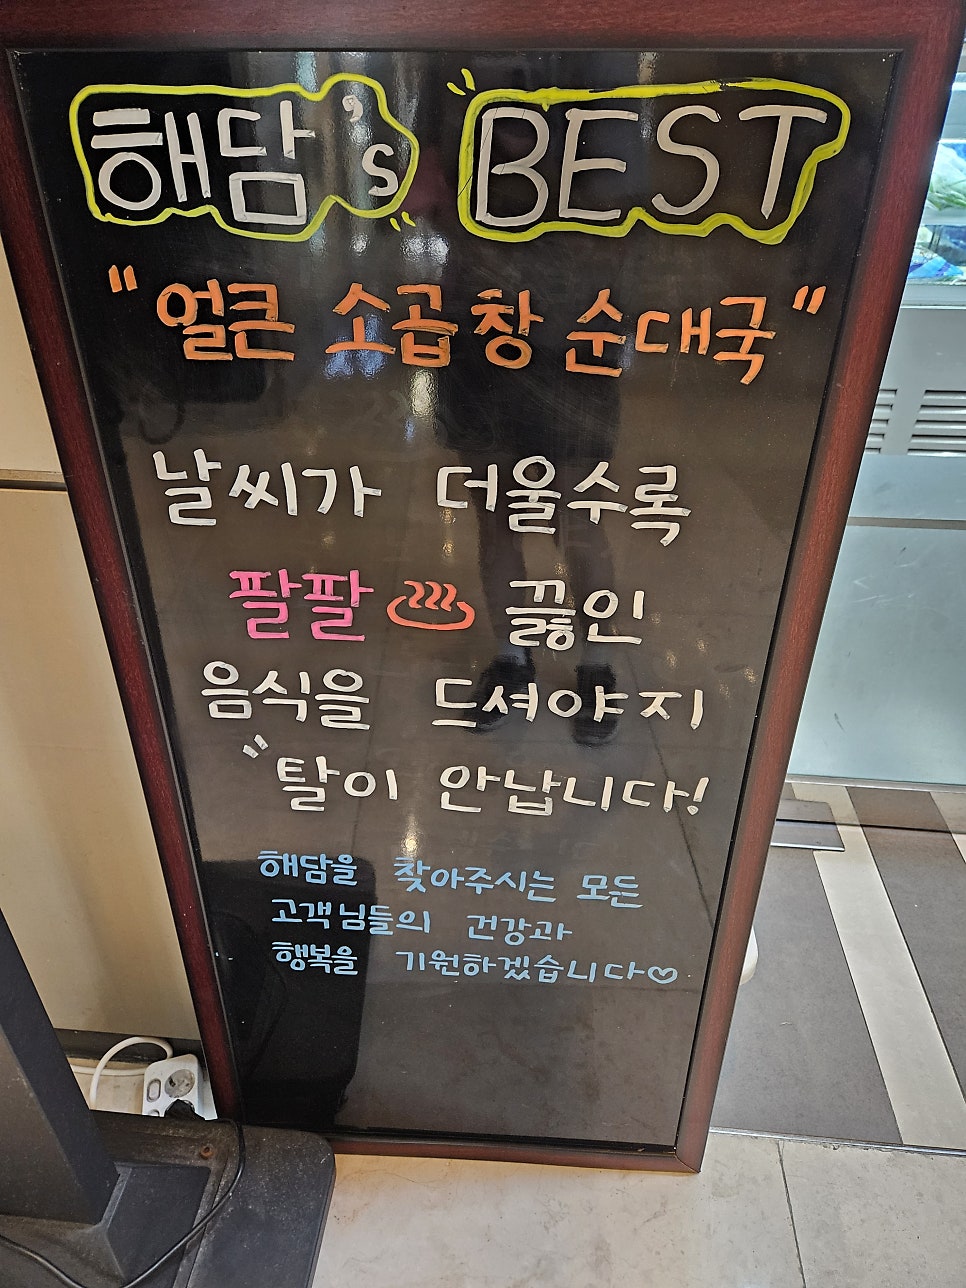 해담's BEST
"얼큰 소곱창 순대국"
날씨가 더울수록
팔팔 ♨ 끓인
음식을 드셔야지
"탈이 안납니다!
해담을 찾아주시는 모든
고객님들의 건강과
행복을 기원하겠습니다♡